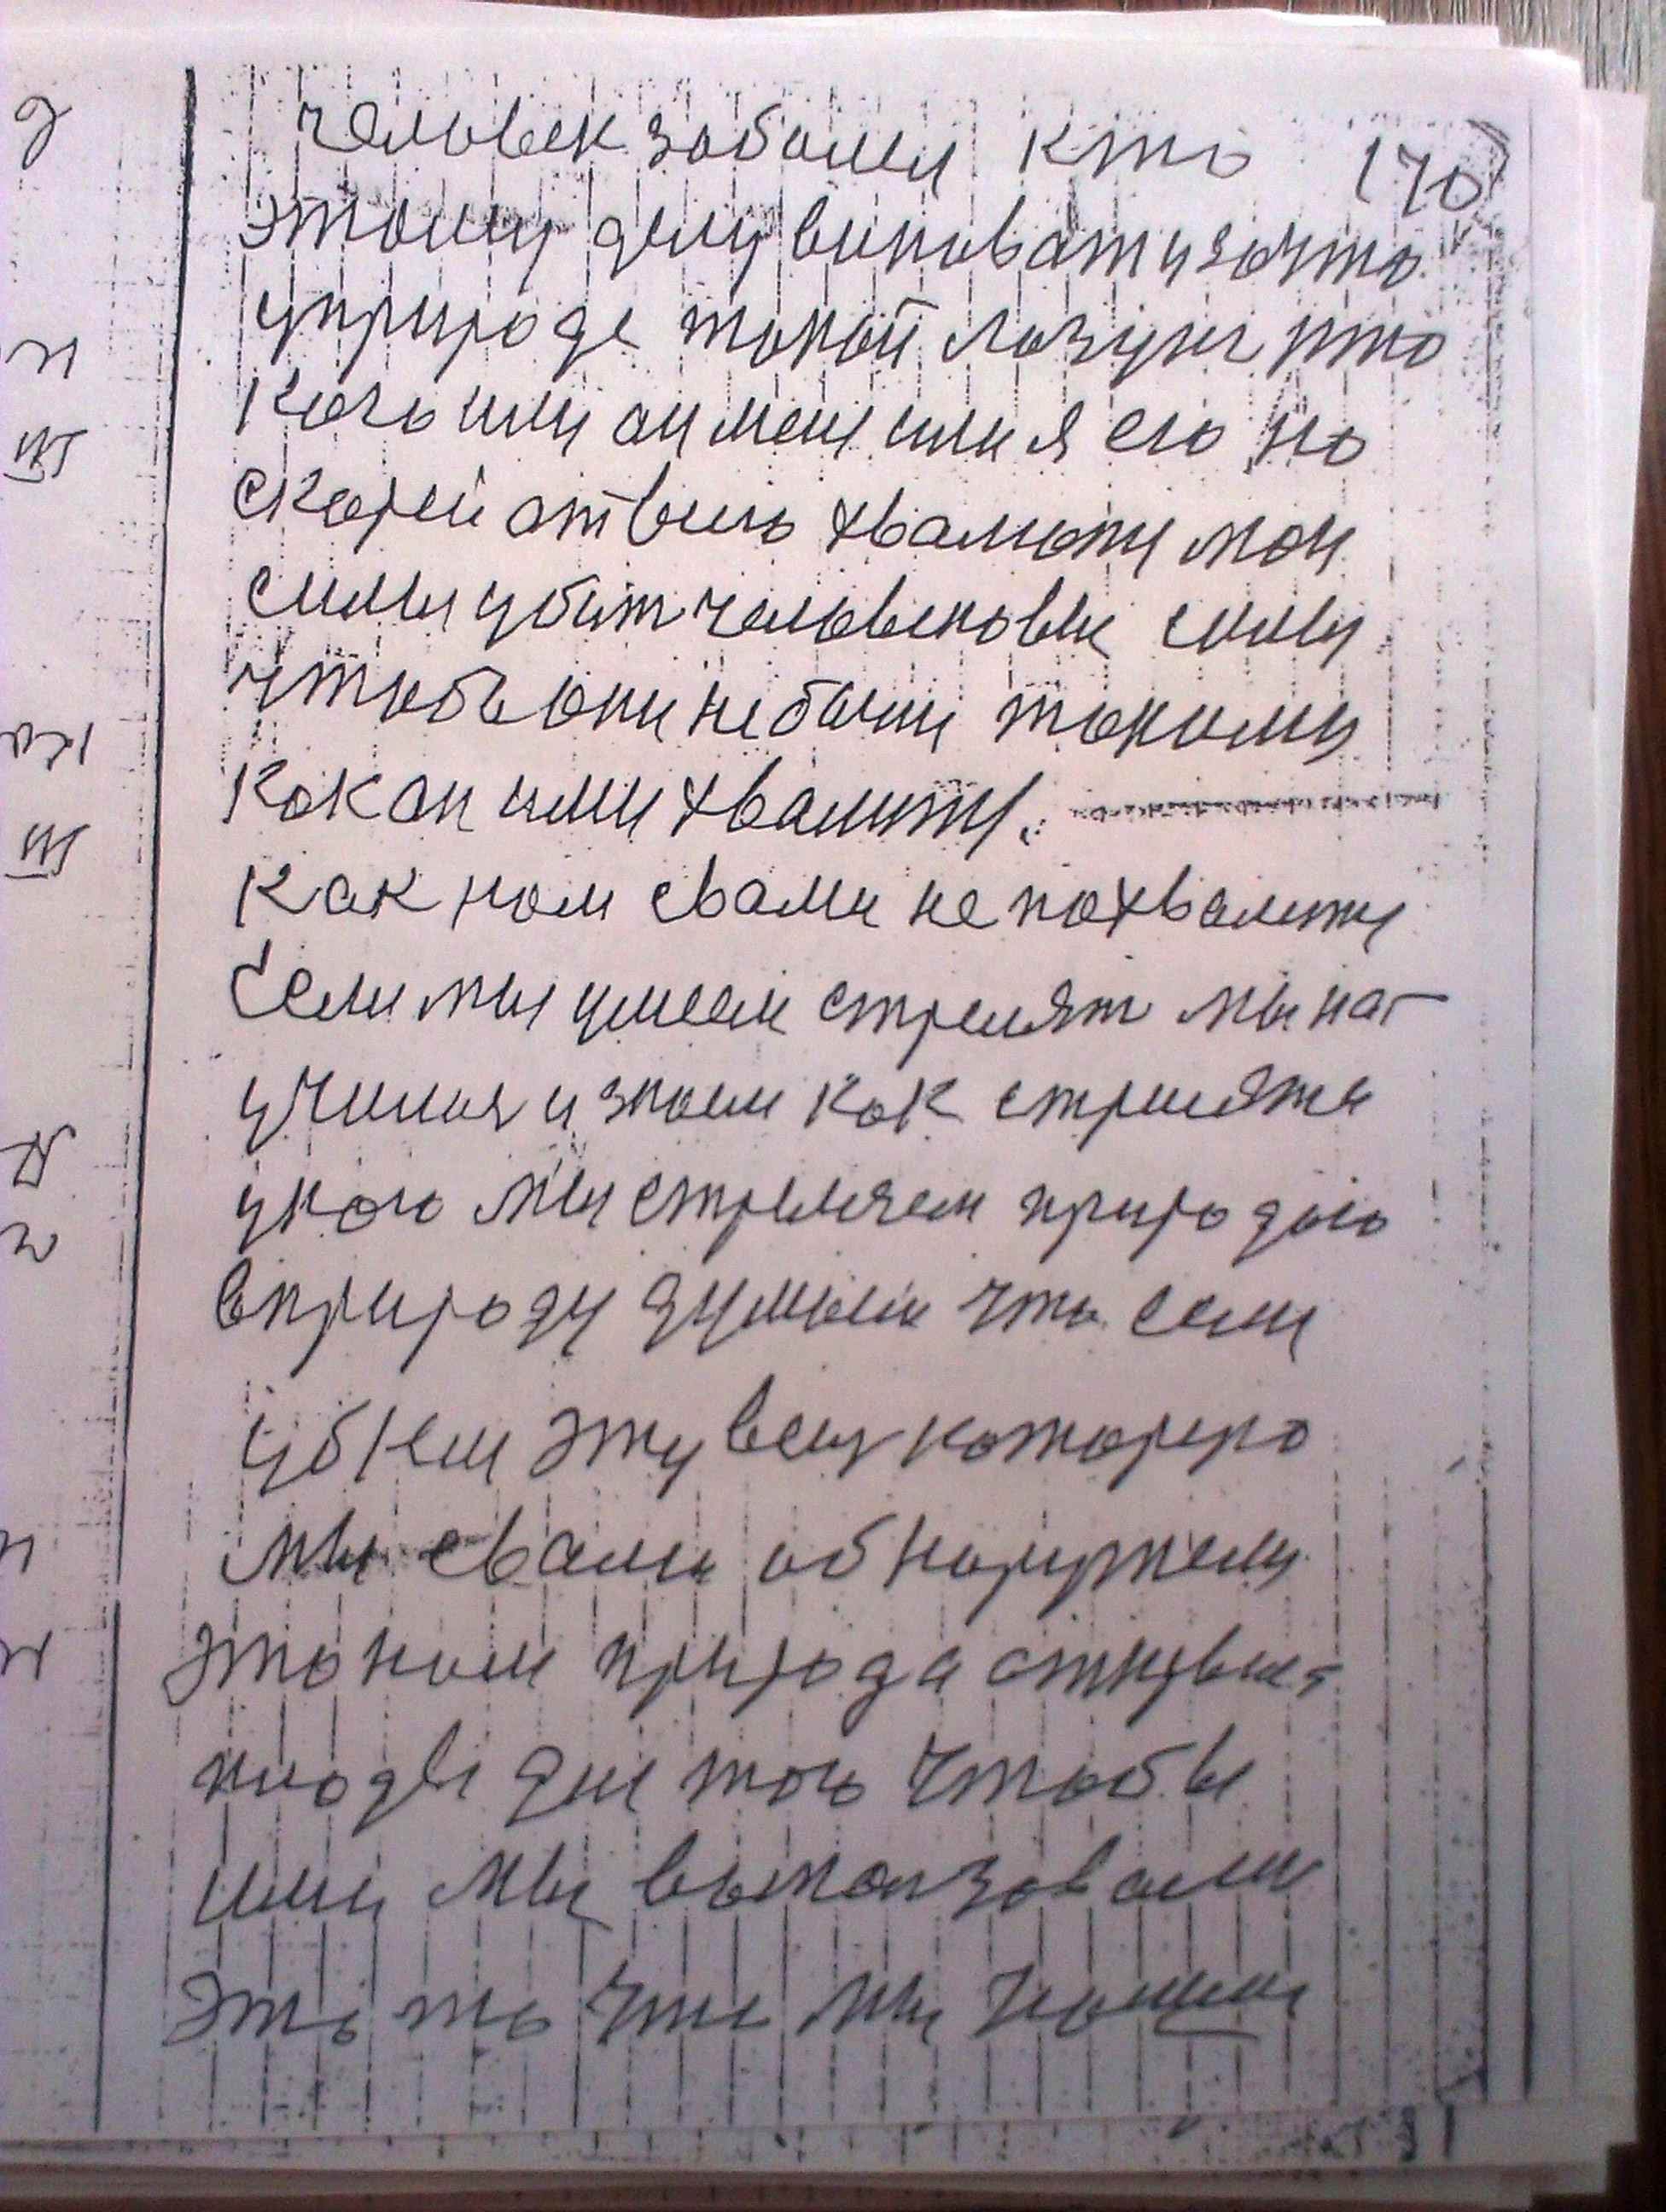 человек заболел кто 170
этому делу виноват и за что
у природе такой лозунг кто
кого или он меня или я его но
скорей от всего хвалюти мои
силы убит человековые силы
чтобы они не были такими
как он ими хвалити.
Как нам свами не похвалити
Если мы умеем стрелят мы на-
учился и знаем как стреляти
у кого мы стреляем природого
в природу думаем что если
убием эту вещ которую
мы свами обнаружели
это нам природа открыла
плоды для того чтобы
ими мы выползовали
это то что мы нашли